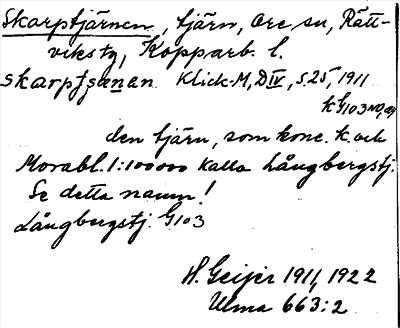 Skarptjärnen, tjärn, Ore sn, Rätt-
viks tg, Kopparb. l.
skarpfsænan Klick-M, DIV, s. 25, 1911
den tjärn, som konc. k. och
Morabl. 1:100000 kalla Långbergstj.
Se detta namn!
Långbergstj. G103
H. Geijer 1911, 1922
Ulma 663:2